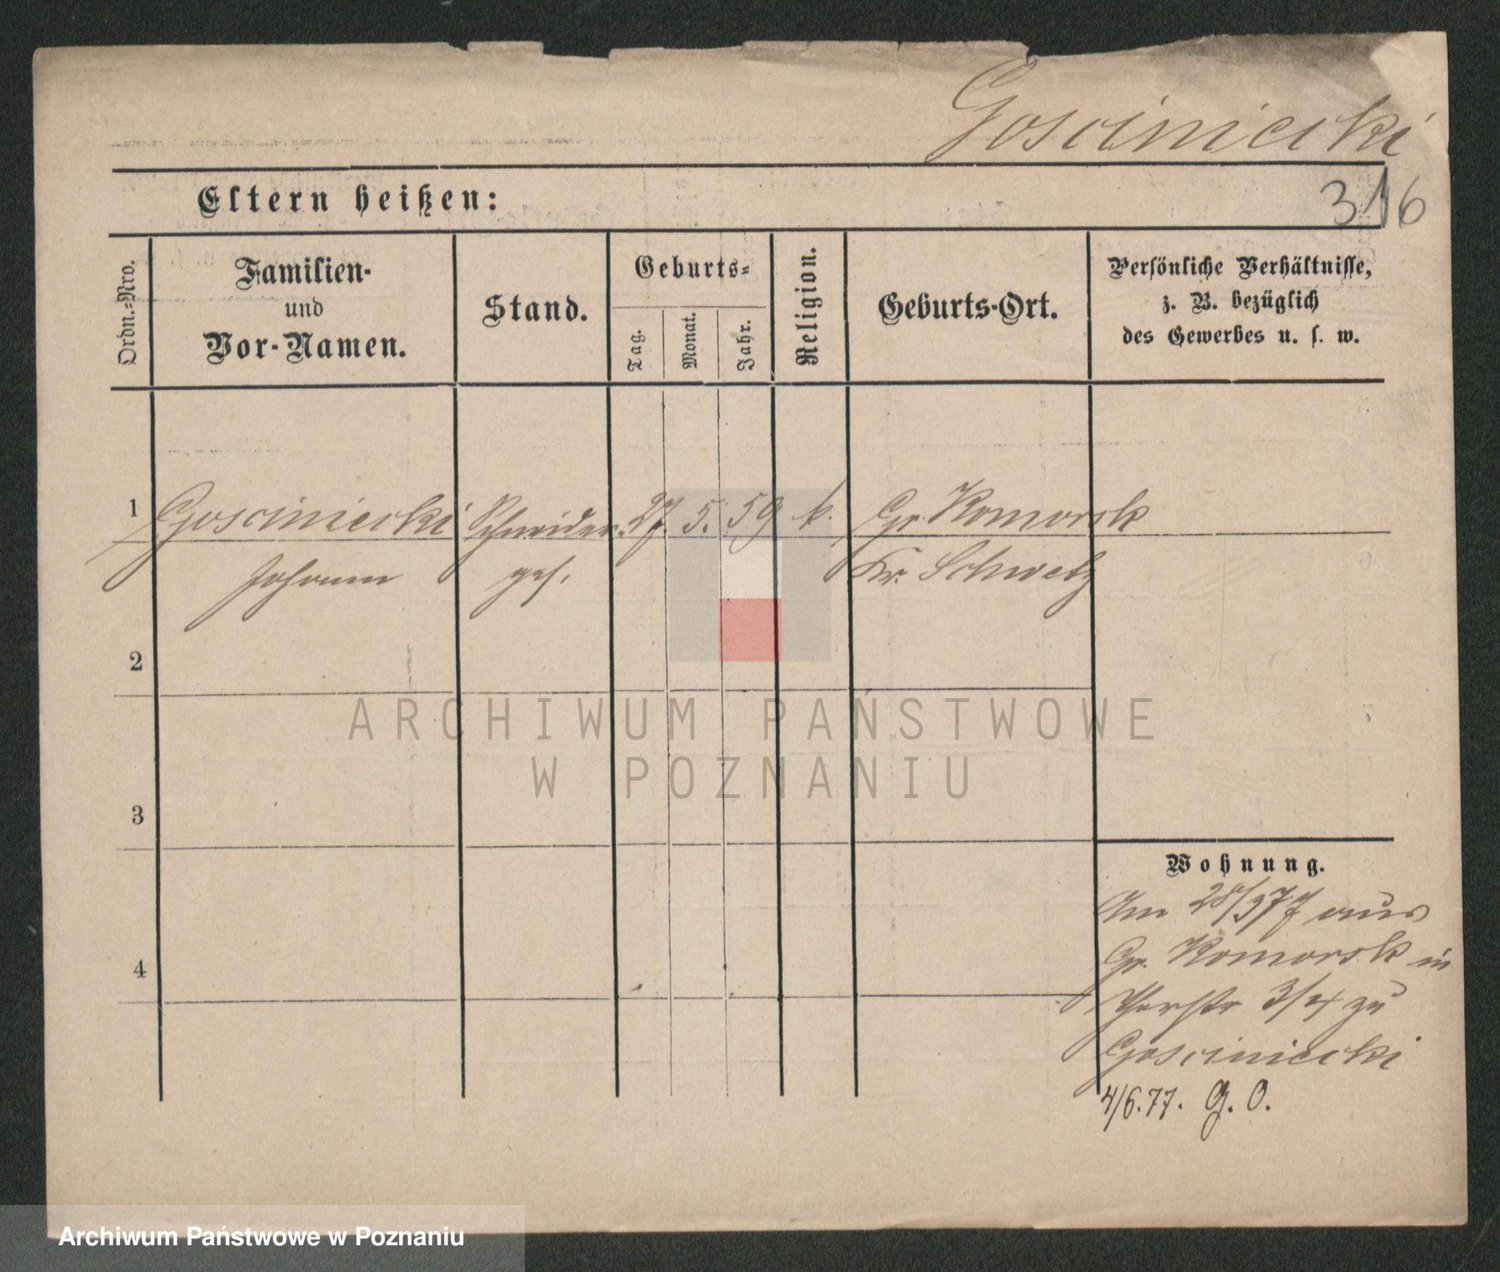 Gosciniecki
316
Eltern heißen:
Ordn.-Nro.
Familien-
und
Vor-Namen.
Stand.
Geburts-
Tag.
Monat.
Jahr.
Religion.
Geburts-Ort.
Persönliche Verhältnisse,
z. B. bezüglich
des Gewerbes u. s. w.
1 Gosciniecki Schneider 27. 5. 59 k. Gr. Komorsk
Johann ges. Kr. Schwetz
2
ARCHIWUM PAŃSTWOWE
W POZNANIU
3
Wohnung.
Am 28/3 77 aus
Gr. Komorsk in
4
3/4 zu
Gosciniecki
4/6.77. G. O.
Archiwum Państwowe w Poznaniu